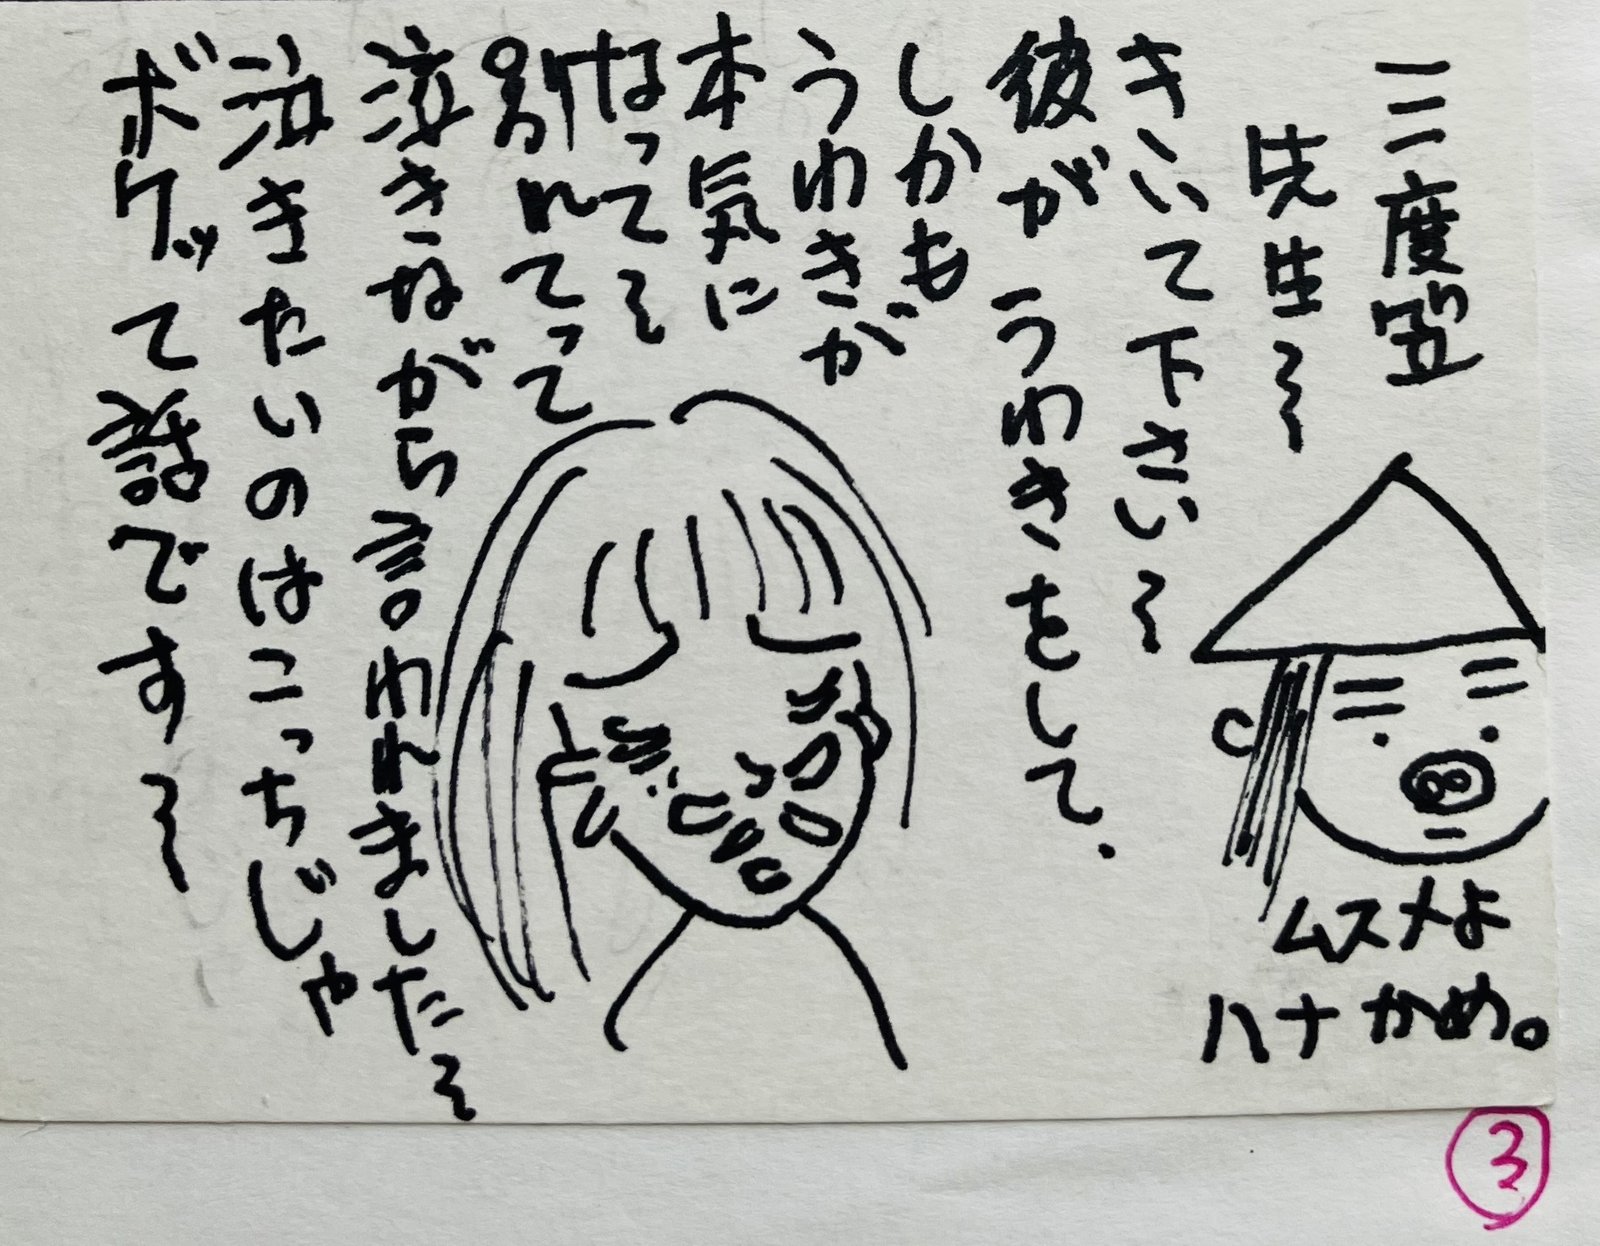 三度笠
先生〜
きいて下さい〜
彼がうわきをして.
しかも
うわきが
本気に
なってて〜
別れてって
泣きながら言われました〜
泣きたいのはこっちじゃ
ボケッて話です〜
ムスメよ
ハナかめ。
3